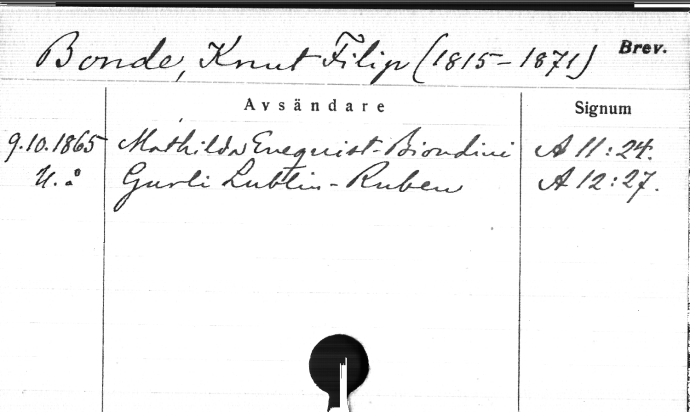 Bonde, Knut Filip (1815-1871) Brev.
Avsändare Signum
9.10.1865 Mathilda Enequist-Biondini A 11:24.
U.å Gurli Lublin-Ruben A 12:27.